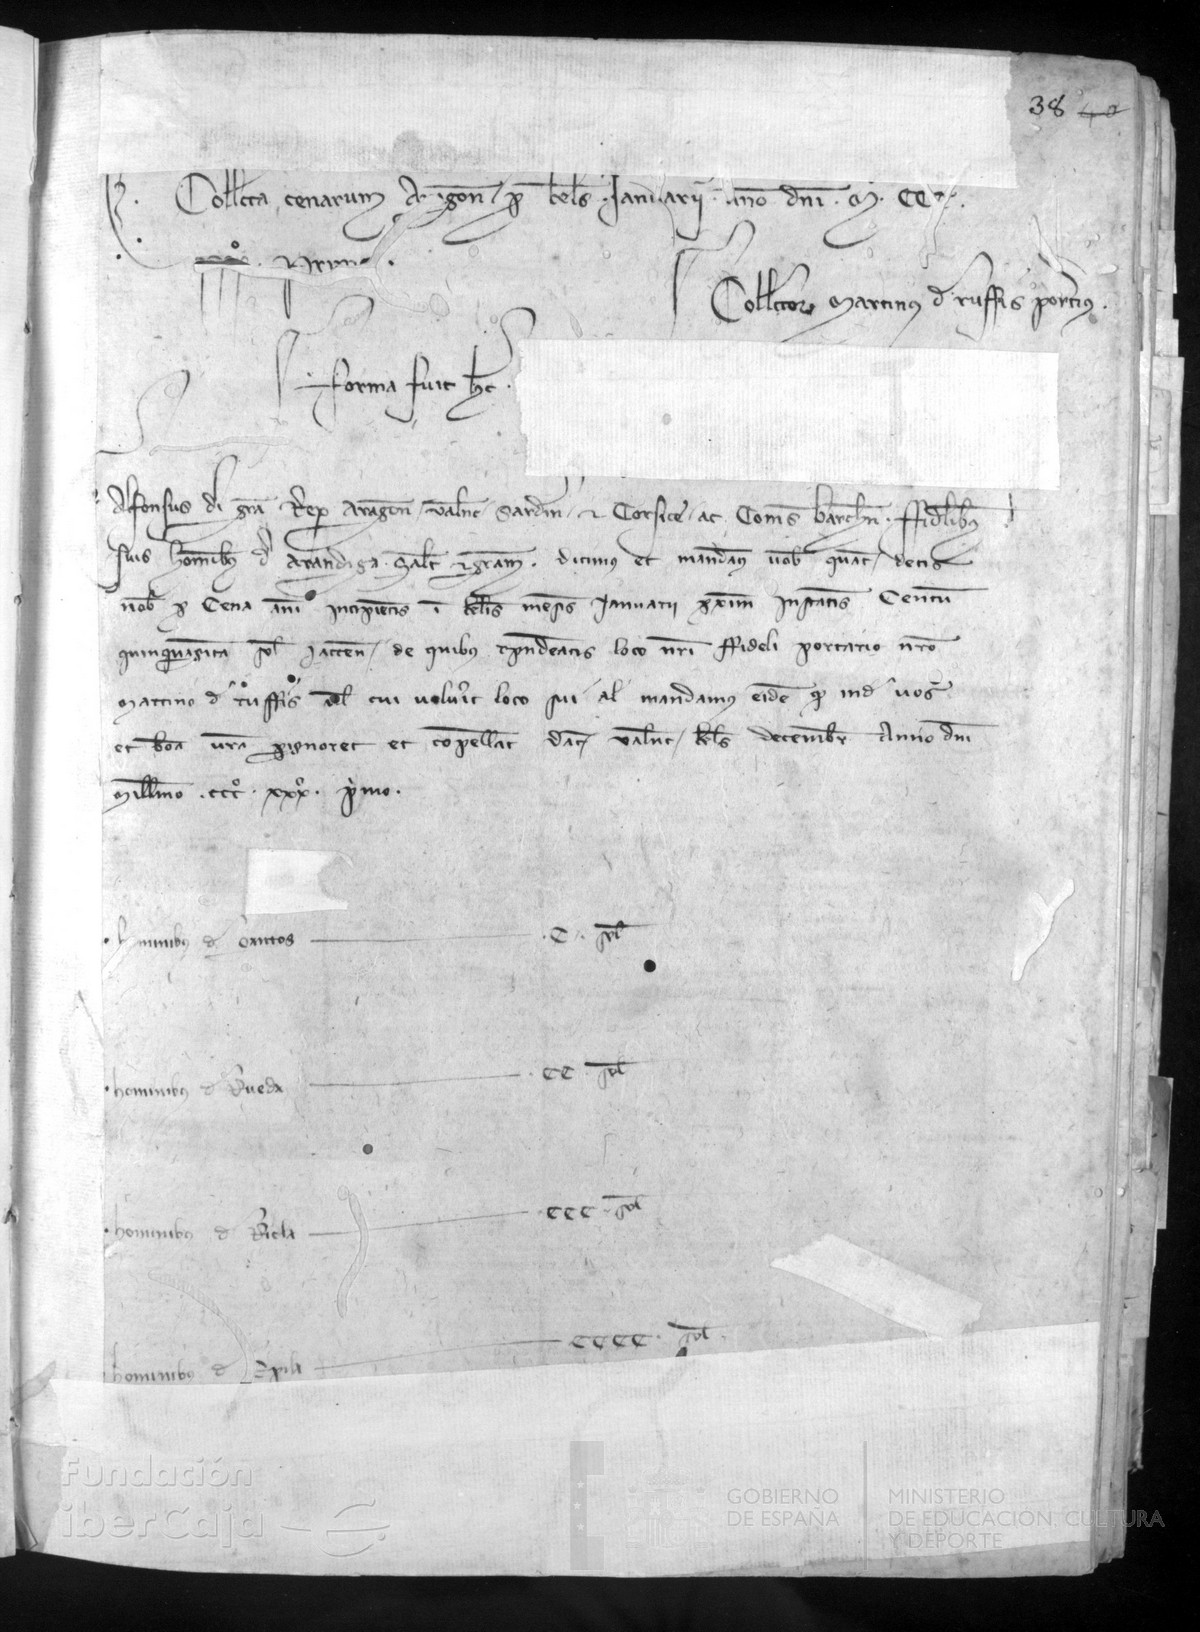 38 40
Coll̄cta cenarum Aragon̄ p̱ kal̄s Januarij Ano dn̄i M. CCC.
Coll̄ctor Martinus d' ruffis port'ius.
forma fuit hec.
Alfonsus di gr̄a Rex Aragon̄ valn̄c Sardin̄ et Corsice ac Comes barch̄n ffidelibus
suis hom̄nibus d' Arandiga Salt̄ et gr̄am. dicimus et mandam̄ vob quat̄ detis
nob̄ p̱ Cena ann̄i incipientis ī kal̄s mens̄is Januarii p̱xim̄ instantis Centū
quinquaginta sol̄ iaccen̄ de quibus r̄pndeatis loco nr̄i ffideli portario nr̄o
Martino d' ruffis vel cui voluerit loco sui al̄ mandamus eidē q̱ ind̄ vos
et bona vr̄a pignoret et compellat dat̄ valn̄c kal̄s decembr̄ Anno dn̄i
Mill̄imo .ccc°. xxx°. p'mo.
hominibus d' Exntos .C. sol̄
hominibus d' Rueda .CC. sol̄
hominibus d' Ricla .CCC. sol̄
hominibus d' Epila CCCC. sol̄
Fundación
iberCaja
GOBIERNO
DE ESPAÑA
MINISTERIO
DE EDUCACIÓN, CULTURA
Y DEPORTE